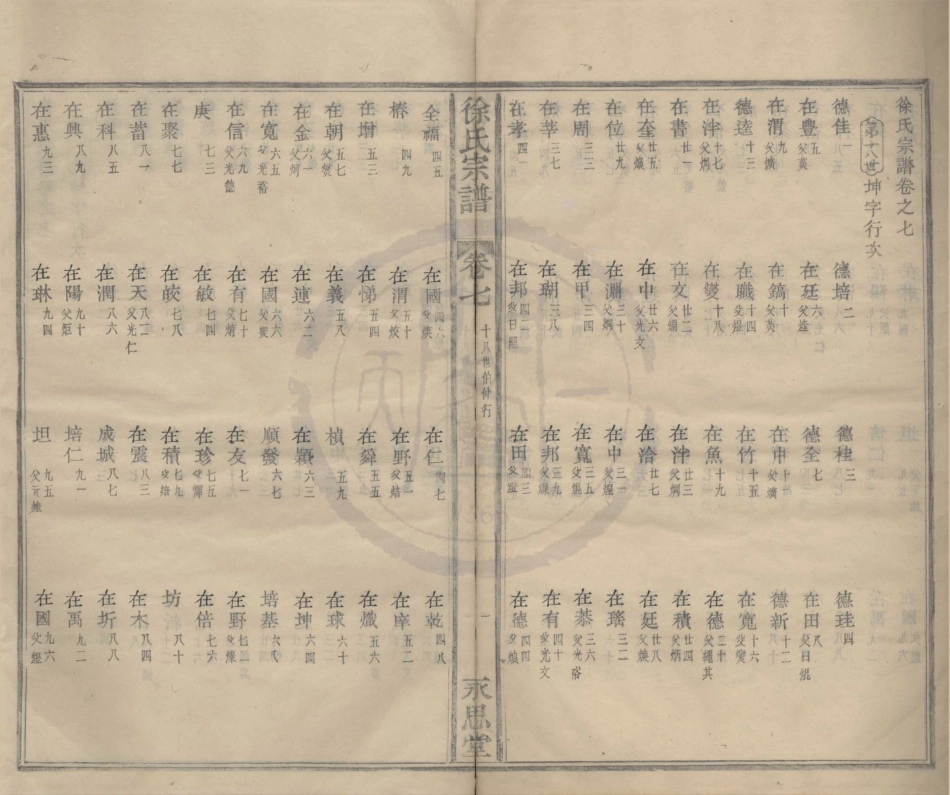 徐氏宗譜卷之七
第十八世 坤字行次
德佳 一 德培 二 德桂 三 德珪 四
在豐 五 父英 在廷 六 父 德全 七 在田 八 父日焜
在渭 九 父 在鎬 十 父 在中 十一 父 德新 十二
德逵 十三 在職 十四 父煜 在竹 十五 在寬 十六 父燮
在沣 十七 父炯 在燮 十八 在魚 十九 在德 二十 父繩其
在書 廿一 在文 廿二 父煬 在沣 廿三 父炯 在積 廿四 父炳
在奎 廿五 父 在中 廿六 父光文 在洽 廿七 在廷 廿八
在位 廿九 在淵 三十 父炯 在中 三一 父煌 在璸 三二
在周 三三 在甲 三四 在寬 三五 父焜 在恭 三六 父光裕
在莘 三七 在瑚 三八 在邦 三九 父 在有 四十 父光文
在孝 四一 在邦 四二 父日 在田 四三 父 在德 四四 父
徐氏宗譜 卷七 十八世伯仲行 一 永思堂
全福 四五 在國 四六 父 在仁 四七 在乾 四八
椿 四九 在渭 五十 父 在野 五一 父 在庠 五二
在增 五三 在悌 五四 在舜 五五 在熾 五六
在朝 五七 父 在義 五八 楨 五九 在球 六十
在金 六一 父炯 在連 六二 在穎 六三 在坤 六四
在寬 六五 父光裕 在國 六六 父 順發 六七 培基 六八
在信 六九 父光 在有 七十 父 在友 七一 在野 七二 父
庚 七三 在敏 七四 在珍 七五 父 在倍 七六
在聚 七七 在皎 七八 在積 七九 父 坊 八十
在蓄 八一 在天 八二 父光仁 在雲 八三 在木 八四
在科 八五 在潤 八六 成城 八七 在圻 八八
在興 八九 在陽 九十 父 培仁 九一 在禹 九二
在惠 九三 在琳 九四 坦 九五 父元 在國 九六 父煜